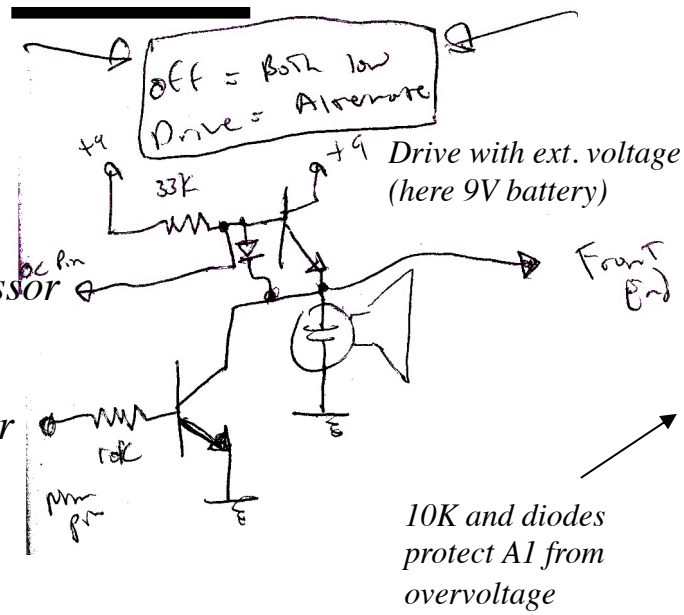 off = Both low
Drive = Alternate
+9
+9
Drive with ext. voltage
(here 9V battery)
33K
OC Pin
ssor
Front
End
r
10K
pin
10K and diodes
protect A1 from
overvoltage